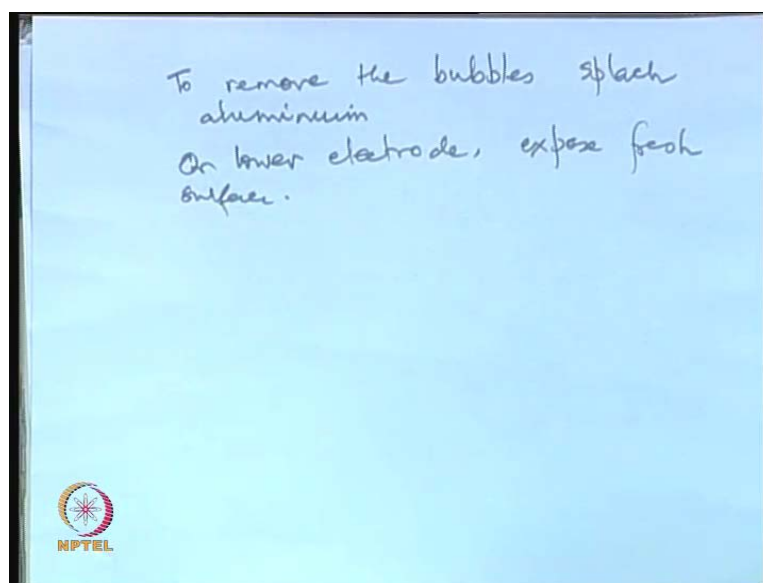 To remove the bubbles splach
aluminium
Or lower electrode, expose fresh
surface.
NPTEL